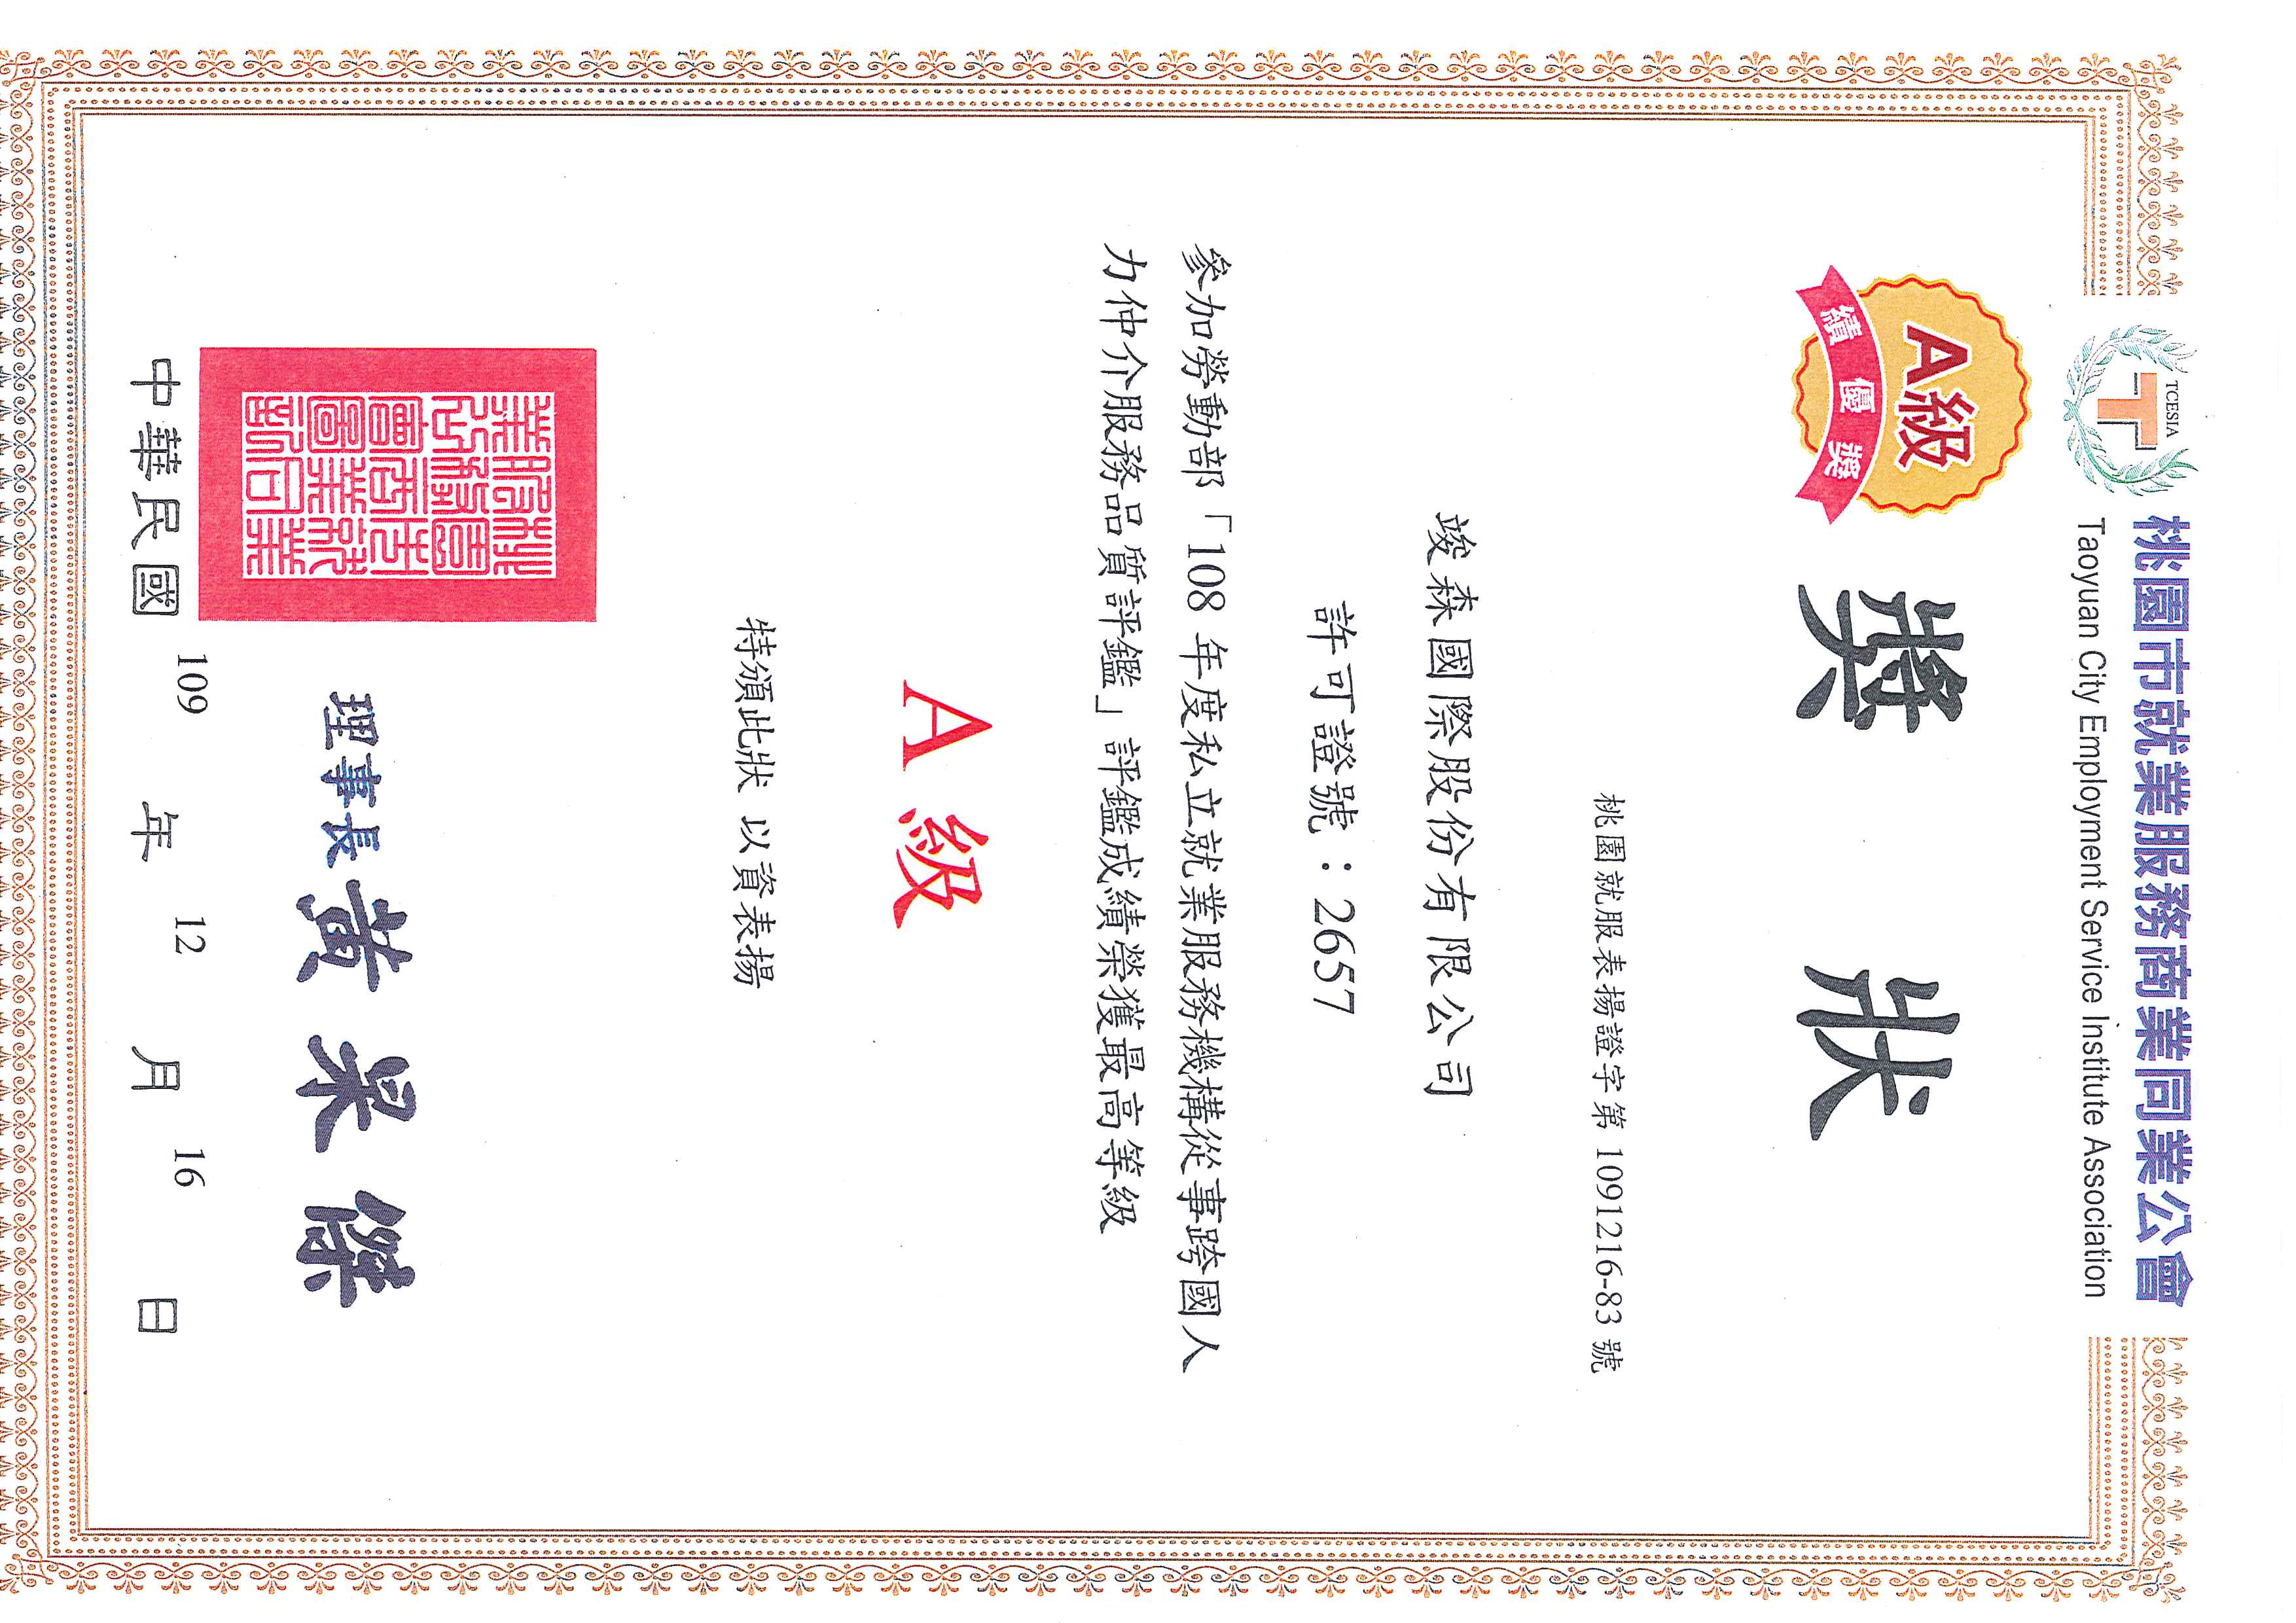 TCESIA
桃園市就業服務商業同業公會
Taoyuan City Employment Service Institute Association
A級
績優獎
獎狀
桃園就服表揚證字第 1091216-83 號
竣森國際股份有限公司
許可證號：2657
參加勞動部「108 年度私立就業服務機構從事跨國人
力仲介服務品質評鑑」評鑑成績榮獲最高等級
A 級
特頒此狀 以資表揚
理事長 黃杲傑
中華民國 109 年 12 月 16 日